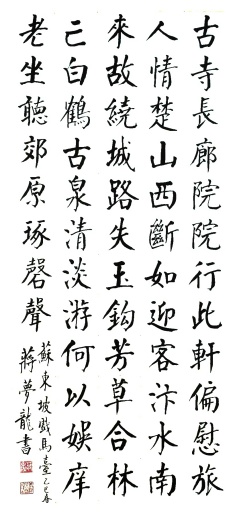 古寺長廊院院行此軒偏慰旅
人情楚山西斷如迎客汴水南
來故繞城路失玉鈎芳草合林
亡白鶴古泉清淡游何以娛庠
老坐聽郊原琢磬聲
蘇東坡戲馬臺
蔣夢龍書